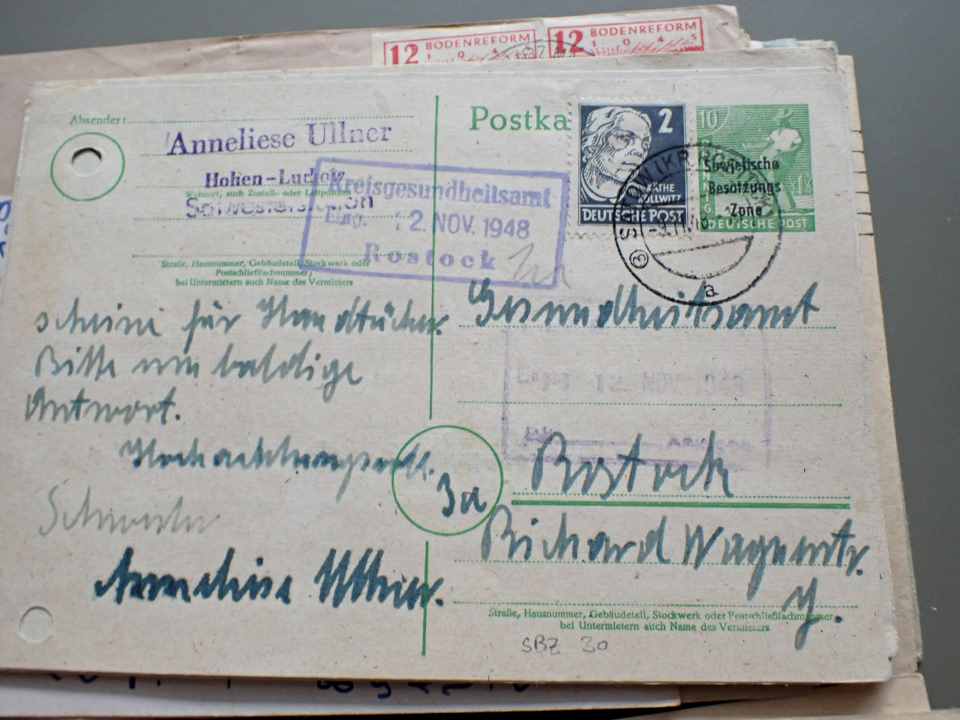 12 BODENREFORM
12 BODENREFORM
Absender:
Anneliese Ullner
Hohen-Luckow
Schwesternstation
Wohnort, auch Zustell- oder Leitpostamt
Straße, Hausnummer, Gebäudeteil, Stockwerk oder
Postschließfachnummer;
bei Untermietern auch Name des Vermieters
Kreisgesundheitsamt
Eing. 12. NOV. 1948
Rostock
Postka
2
KÄTHE
KOLLWITZ
DEUTSCHE POST
10
Sowjetische
Besatzungs
Zone
DEUTSCHE POST
a
scheine für Handtücher.
Bitte um baldige
Antwort.
Hochachtungsvoll.
Schwester
Anneliese Ullner.
Gesundheitsamt
12. NOV. 1948
3a
Rostock
Richard Wagnerstr.
Straße, Hausnummer, Gebäudeteil, Stockwerk oder Postschließfachnummer;
bei Untermietern auch Name des Vermieters
SBZ 30